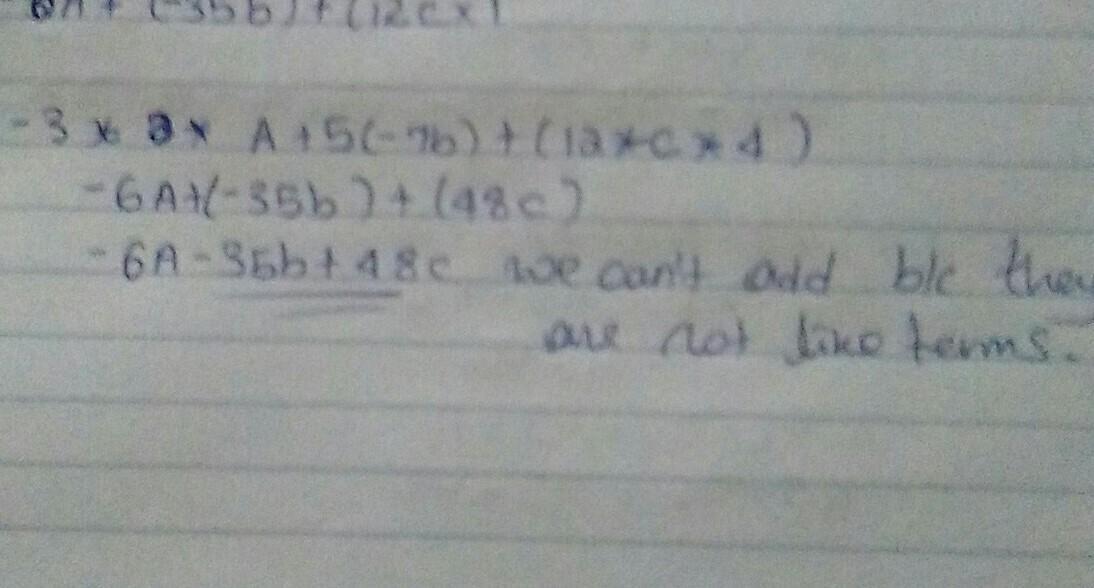 6A + (-35b) + (12cx
-3 x 2 x A + 5(-7b) + (12*c*4)
-6A+(-35b) + (48c)
-6A-35b+48c we can't add b/c they
are not like terms.